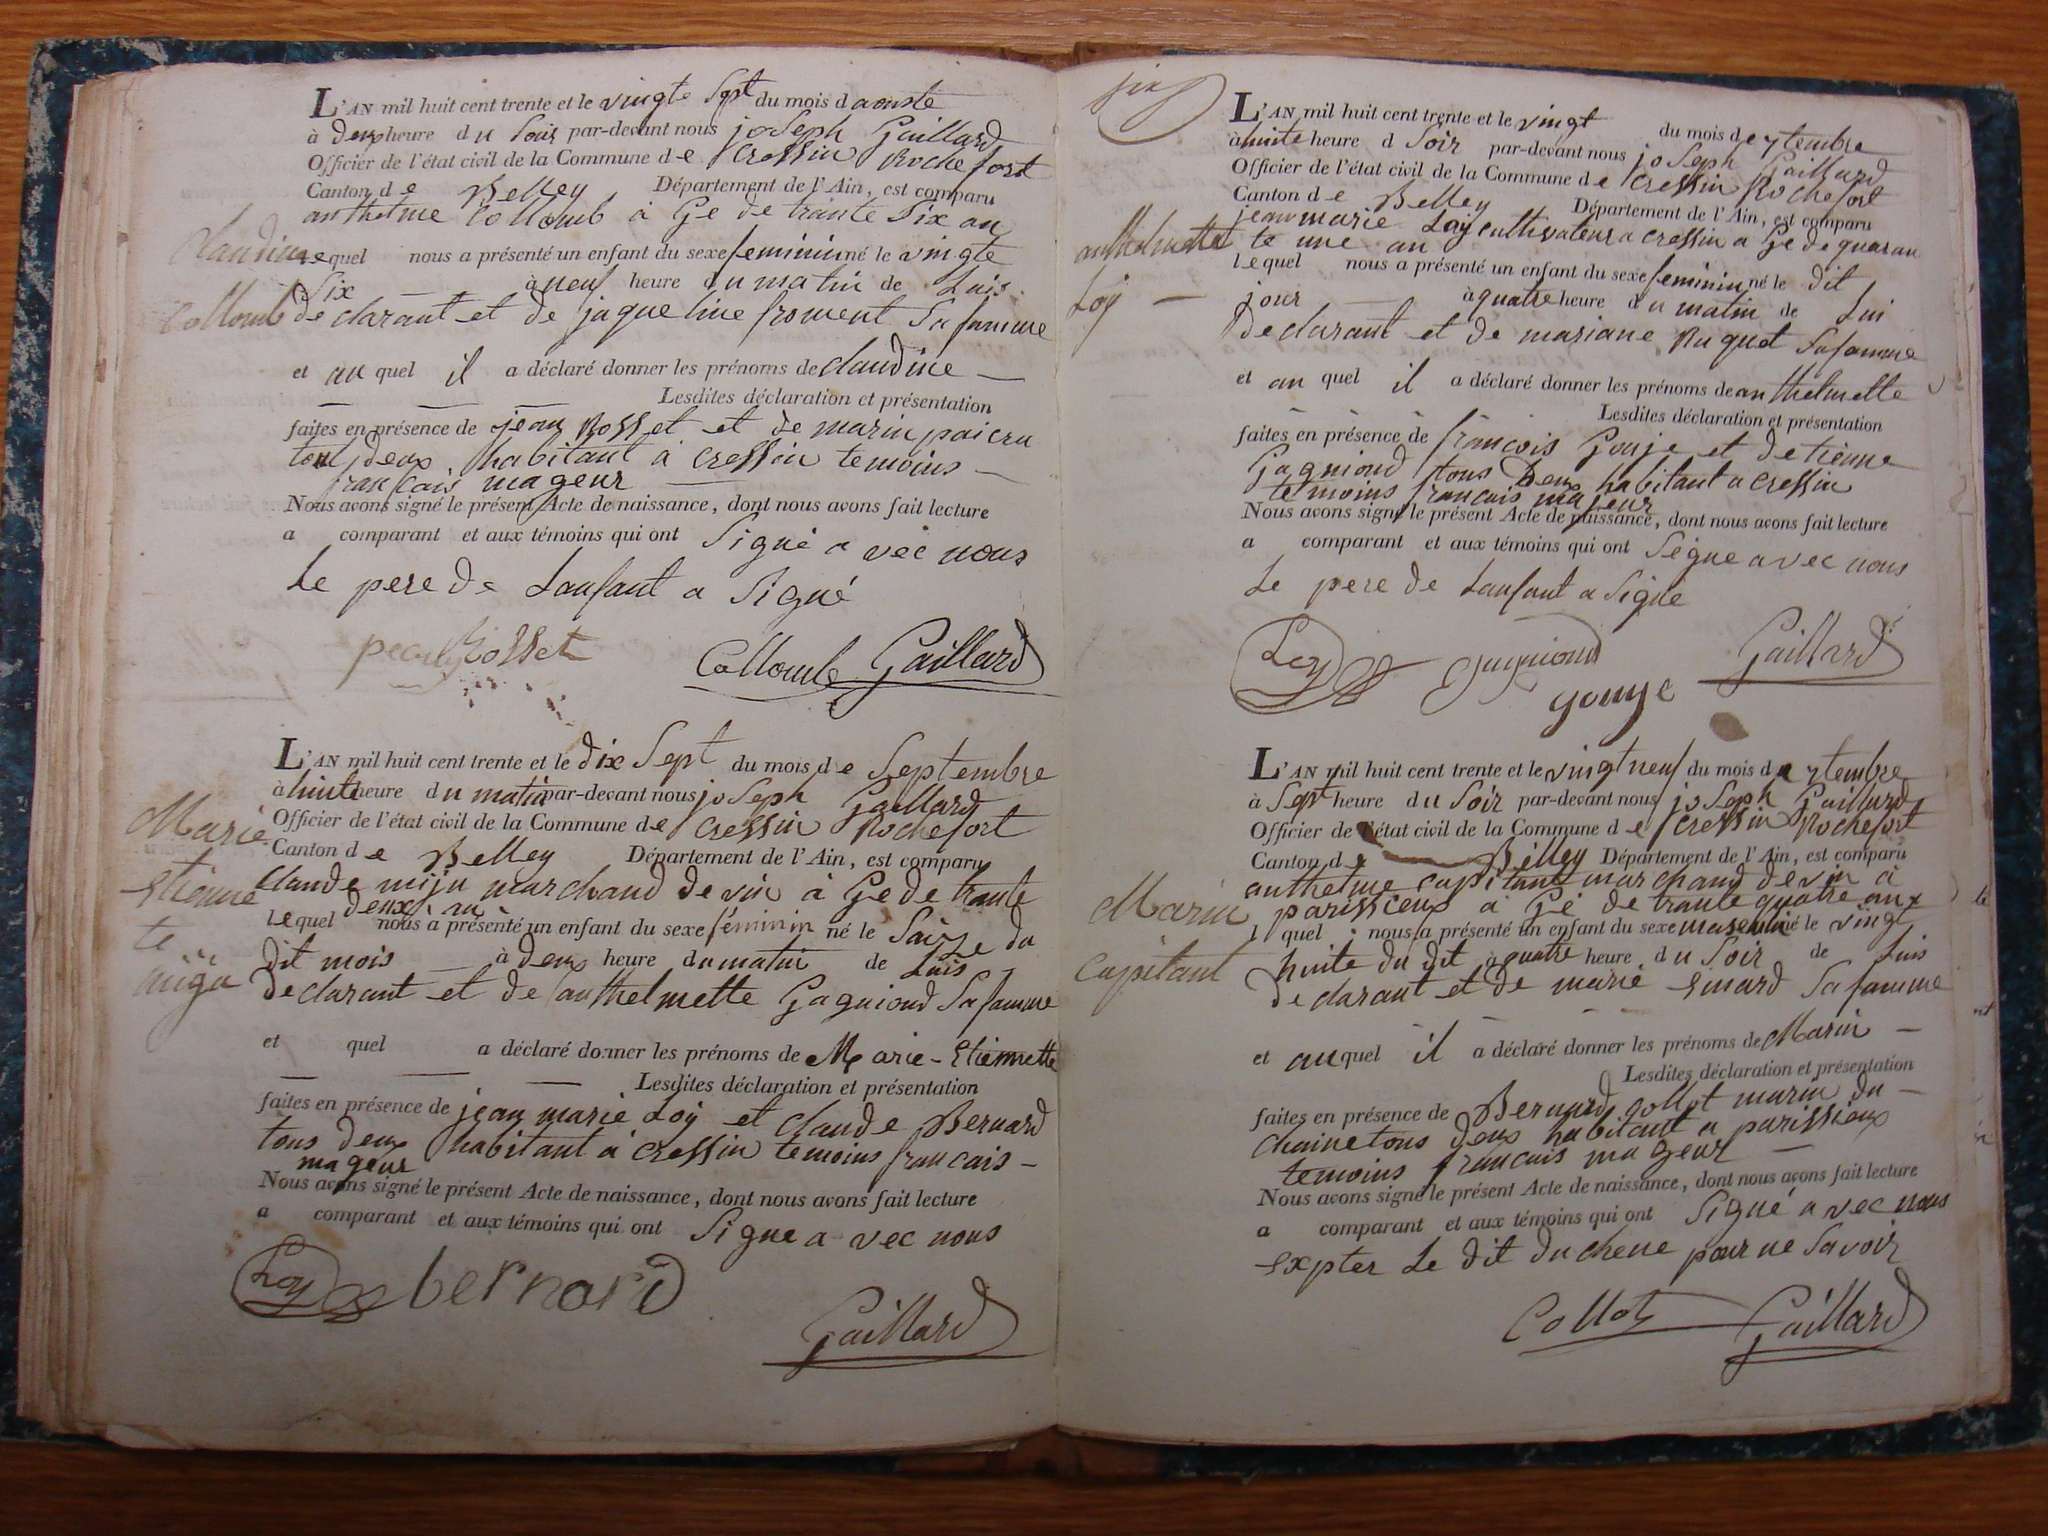 L'AN mil huit cent trente et le vingte Sept du mois d aouste
à deux heure du Soir par-devant nous joseph Gaillard
Officier de l'état civil de la Commune de Cressin Rochefort
Canton de Belley Département de l'Ain, est comparu
anthelme Collomb a Ge de trante Six an
Claudine
lequel nous a présenté un enfant du sexe feminin né le vingte
Six à neuf heure du matin de Luis
Collomb
declarant et de jaqueline froment Sa famme
et au quel il a déclaré donner les prénoms de Claudine
Lesdites déclaration et présentation
faites en présence de jean Rosset et de marin
tout deux habitant a cressin temoins
francais mageur
Nous avons signé le présent Acte de naissance, dont nous avons fait lecture
a comparant et aux témoins qui ont Signé avec nous
Le pere de Lanfant a Signé
Rosset Collomb Gaillard
L'AN mil huit cent trente et le dix Sept du mois de Septembre
à huite heure du matin par-devant nous joseph Gaillard
Officier de l'état civil de la Commune de Cressin Rochefort
Marie
Canton de Belley Département de l'Ain, est comparu
Etienne
claude miju marchand de vin à Ge de trante
deux an
lequel nous a présenté un enfant du sexe féminin né le Saize du
te
dit mois à deux heure du matin de Luis
miga
declarant et de anthelmette Gagniond Sa famme
et quel a déclaré donner les prénoms de Marie-Etiennette
Lesdites déclaration et présentation
faites en présence de jean marie Loÿ et claude Bernard
tous deux habitant à cressin temoins francais
mageur
Nous avons signé le présent Acte de naissance, dont nous avons fait lecture
a comparant et aux témoins qui ont Signe avec nous
Loy bernard
Gaillard
six
L'AN mil huit cent trente et le vingt du mois de 7tembre
à huite heure d Soir par-devant nous joseph Gaillard
Officier de l'état civil de la Commune de Cressin Rochefort
Canton de Belley Département de l'Ain, est comparu
jean marie Loÿ cultivateur a cressin a Ge de quaran
anthelmette
te une an
lequel nous a présenté un enfant du sexe feminin né le dit
Loÿ
jour à quatre heure du matin de Lui
declarant et de mariane Ruquet Sa famme
et au quel il a déclaré donner les prénoms de anthelmette
Lesdites déclaration et présentation
faites en présence de françois Gouje et detienne
Gagniond tous Deux habitant a cressin
temoins francais mageur
Nous avons signé le présent Acte de naissance, dont nous avons fait lecture
a comparant et aux témoins qui ont Signe avec nous
Le pere de Lanfant a Signe
Loy Gagniond Gaillard
gouje
L'AN mil huit cent trente et le vingt neuf du mois de 7tembre
à Sept heure du Soir par-devant nous joseph Gaillard
Officier de l'état civil de la Commune de Cressin Rochefort
Canton de Belley Département de l'Ain, est comparu
anthelme capitant marchand de vin a
Marin
parissieux a Gé de trante quatre anx
l quel nous a présenté un enfant du sexe masculin né le vingt
capitant
huite du dit à quatre heure du Soir de Luis
declarant et de marie Emard Sa famme
et au quel il a déclaré donner les prénoms de Marin
Lesdites déclaration et présentation
faites en présence de Bernard Collot marin du
chaine tous deux habitant a parissieux
temoins francais mageur
Nous avons signé le présent Acte de naissance, dont nous avons fait lecture
a comparant et aux témoins qui ont Signé avec nous
expter Le dit duchene pour ne Savoir
Collot Gaillard